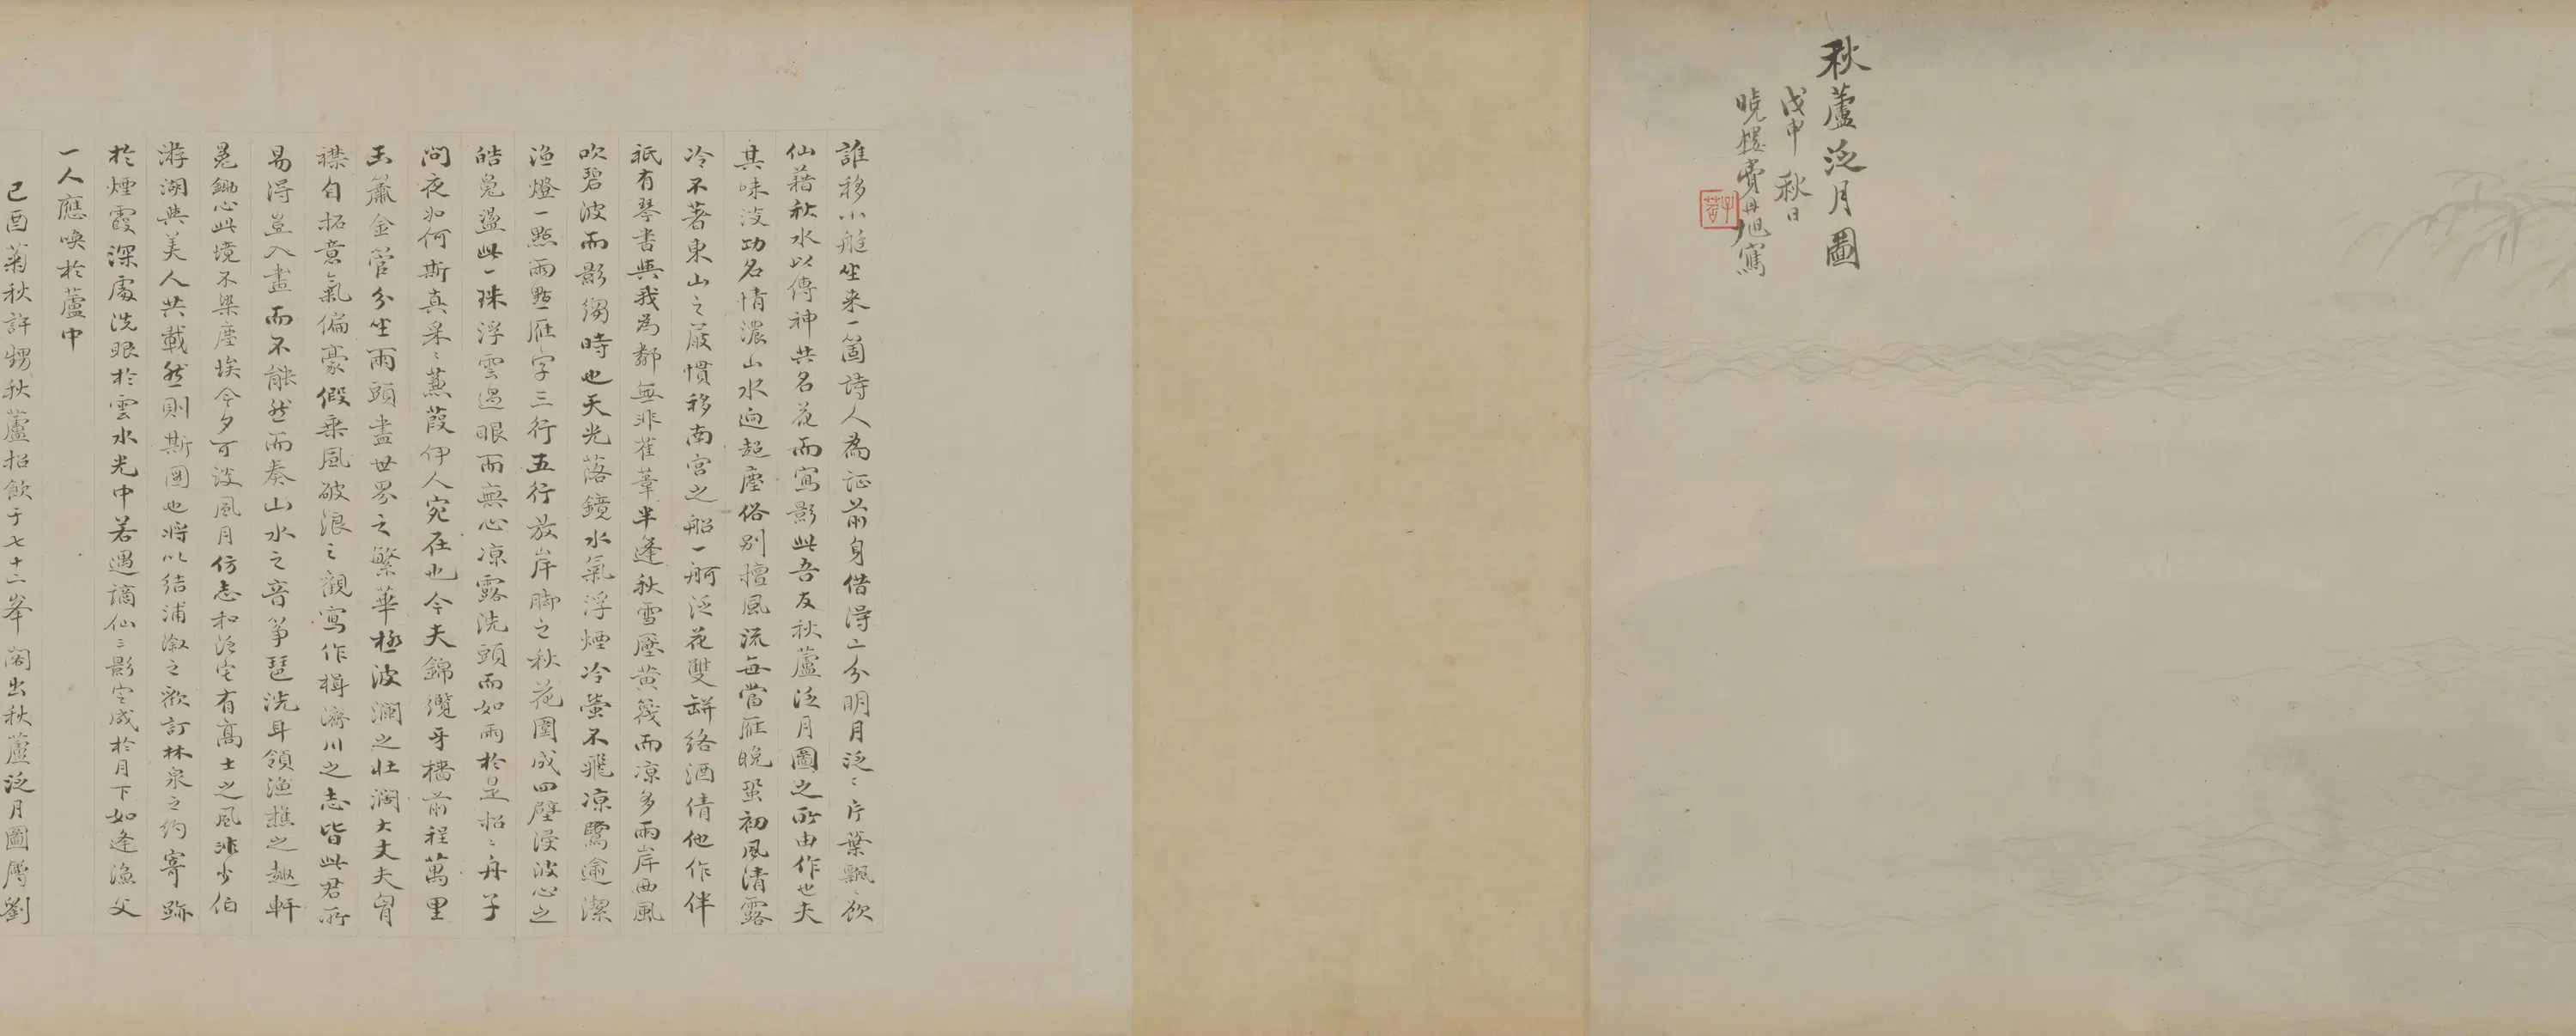 秋蘆泛月圖
戊申秋日
曉樓費丹旭寫
子苕
誰移小艇坐来一箇詩人為証前身借得二分明月泛〻片葉飄〻欲
仙藉秋水以傳神共名花而寫影此吾友秋蘆泛月圖之所由作也夫
其味淡功名情濃山水迥超塵俗别擅風流每當雁晚蛩初風清露
冷不著東山之屐慣移南宫之船一舸泛花雙缾絡酒倩他作伴
祇有琴書與我為鄰無非萑葦半篷秋雪壓黄篾而凉多兩岸西風
吹碧波而影縐時也天光落鏡水氣浮煙冷螢不飛凉鷺逾潔
漁燈一點兩點雁字三行五行放岸脚之秋花圍成四壁浸波心之
皓兔盪此一珠浮雲過眼而無心凉露洗頭而如雨於是招〻舟子
問夜如何斯真采〻蒹葭伊人宛在也今夫錦纜牙檣前程萬里
玉簫金管分坐兩頭盡世界之繁華極波瀾之壮濶大丈夫胷
襟自拓意氣偏豪假乗風破浪之觀寫作楫濟川之志皆此君所
易得豈入畫而不能然而奏山水之音箏琶洗耳領漁樵之趣軒
冕鋤心此境不染塵埃今夕可談風月仿志和泛宅有高士之風非少伯
游湖與美人共載然則斯圖也将以結浦溆之歡訂林泉之約寄跡
於煙霞深處洗眼於雲水光中若遇謫仙三影定成於月下如逢漁父
一人應喚於蘆中
己酉菊秋許甥秋蘆招飲于七十二峯閣出秋蘆泛月圖屬劉